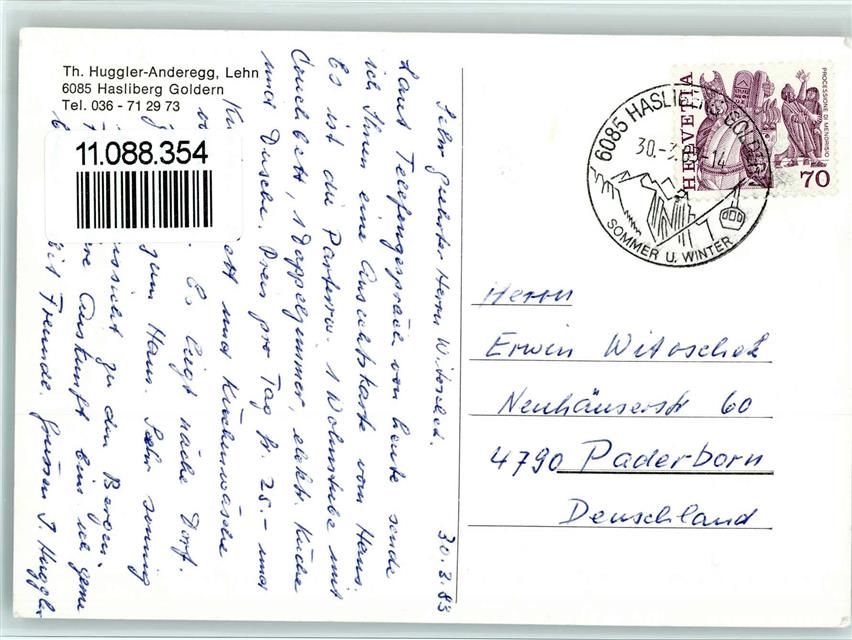 Th. Huggler-Anderegg, Lehn
6085 Hasliberg Goldern
Tel. 036 - 71 29 73
11.088.354
30.3.83
Sehr geehrter Herrn Witoschek.
Laut Telefongespräch von heute sende
ich Ihnen eine Ansichtskarte vom Haus:
Es ist die Parterrw. 1 Wohnstube mit
Couchbett, 1 Doppelzimmer, elektr. Küche
und Dusche. Preis pro Tag Fr. 25.- und
ett und Küchenwäsche
Es liegt nähe Dorf.
zum Haus. Sehr sonnig
zu den Bergen.
Auskunft bin ich gerne
Freunde. Grüssen T. Huggler
6085 HASLIBERG GOLDERN
30.-3.
-14
SOMMER U. WINTER
HELVETIA
PROCESSIONE DI MENDRISIO
70
Herrn
Erwin Witoschek
Neuhäuserstr 60
4790 Paderborn
Deuschland